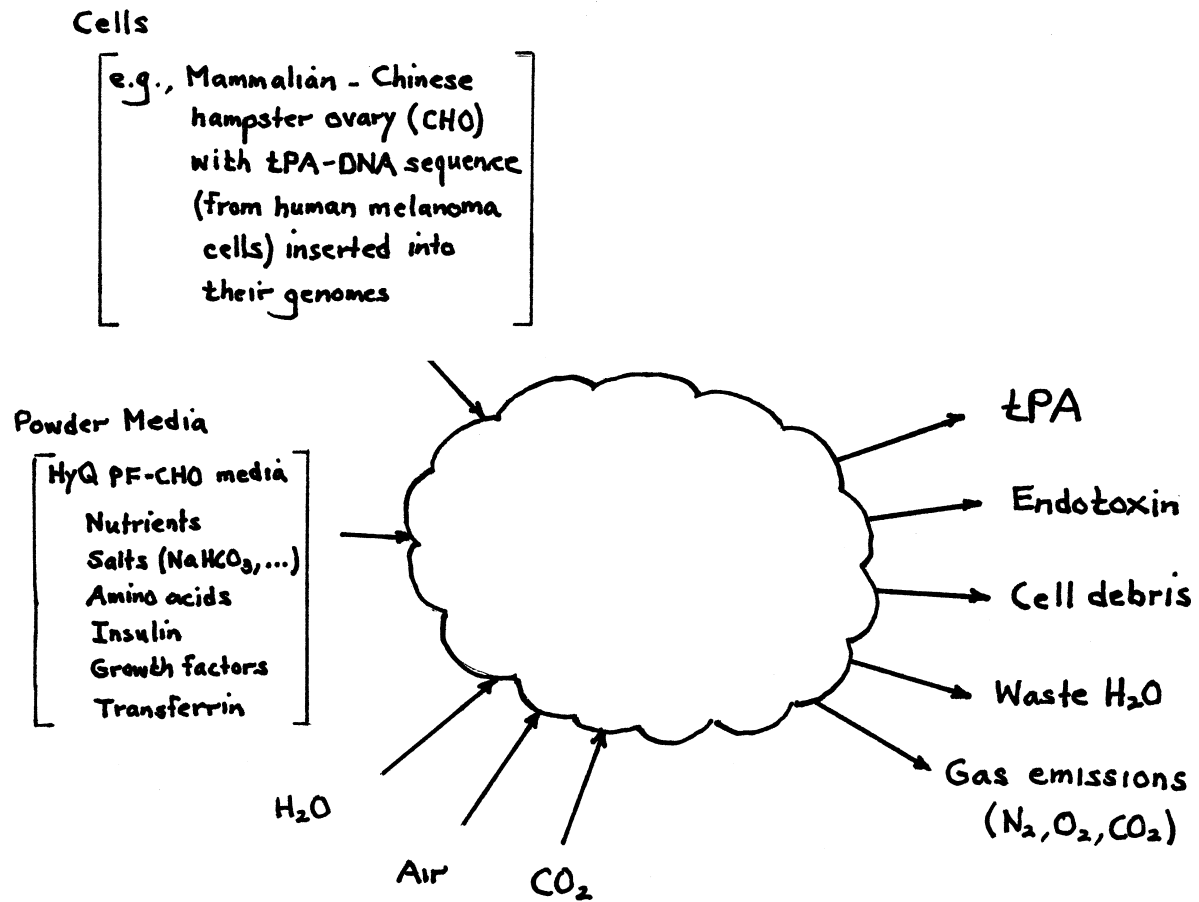 Cells
e.g., Mammalian - Chinese
hampster ovary (CHO)
with tPA-DNA sequence
(from human melanoma
cells) inserted into
their genomes
Powder Media
HyQ PF-CHO media
Nutrients
Salts (NaHCO₃,...)
Amino acids
Insulin
Growth factors
Transferrin
H₂O
Air
CO₂
tPA
Endotoxin
Cell debris
Waste H₂O
Gas emissions
(N₂, O₂, CO₂)